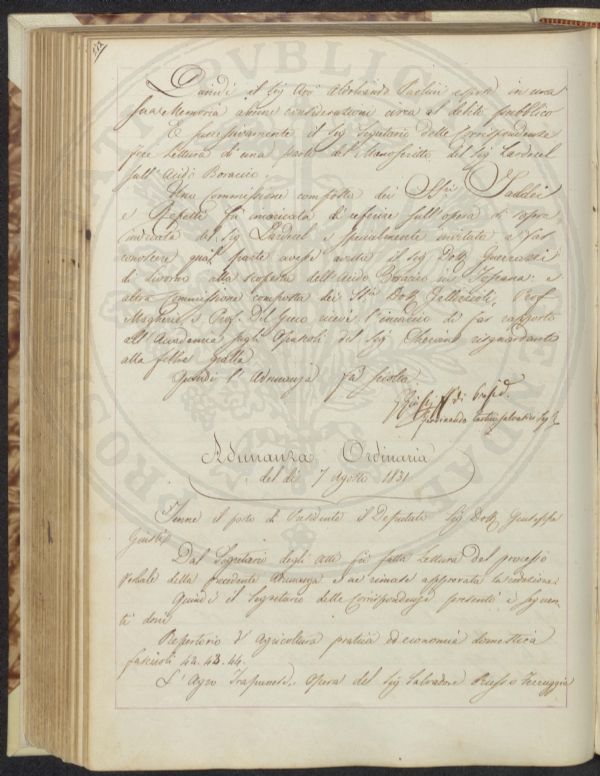 Quindi il Sig. Avv. Aldobrando Paolini espose in una
sua Memoria alcune considerazioni circa al debito pubblico
E successivamente il Sig. Segretario delle Corrispondenze
fece lettura di una parte del Manoscritto del Sig. Larderel
sull'Acido Boracico.
Una Commissione composta dei SSri. Taddei
e Repetti fù incaricata di referire sull'opera di sopra
indicata del Sig. Larderel e specialmente invitata a far
conoscere qual parte avesse avuta il Sig. Dott. Guerrazzi
di Livorno alla scoperta dell'Acido Boracico in Toscana: e
altra Commissione composta dei SSri Dott. Prof.
e Prof. Del Greco riceve l'incarico di far rapporto
all'Accademia sugli Opuscoli del Sig. risguardante
alla febbre gialla
Quindi l'Adunanza fù sciolta.
di Presid.
Ferdinando Tartini Salvatici Seg.
Adunanza Ordinaria
del dì 7 Agosto 1831
Tenne il posto di Presidente il Deputato Sig. Dott. Giuseppe
Giusti
Dal Segretario degli Atti fù fatta lettura del processo
verbale della precedente Adunanza e ne rimase approvata la redazione.
Quindi il Segretario delle Corrispondenze presentò i seguen
ti doni
Repertorio d'Agricoltura pratica ed economia domestica
fascicoli 42. 43. 44.
L'Agro Trapanese, Opera del Sig. Salvadore Russo Ferruggia